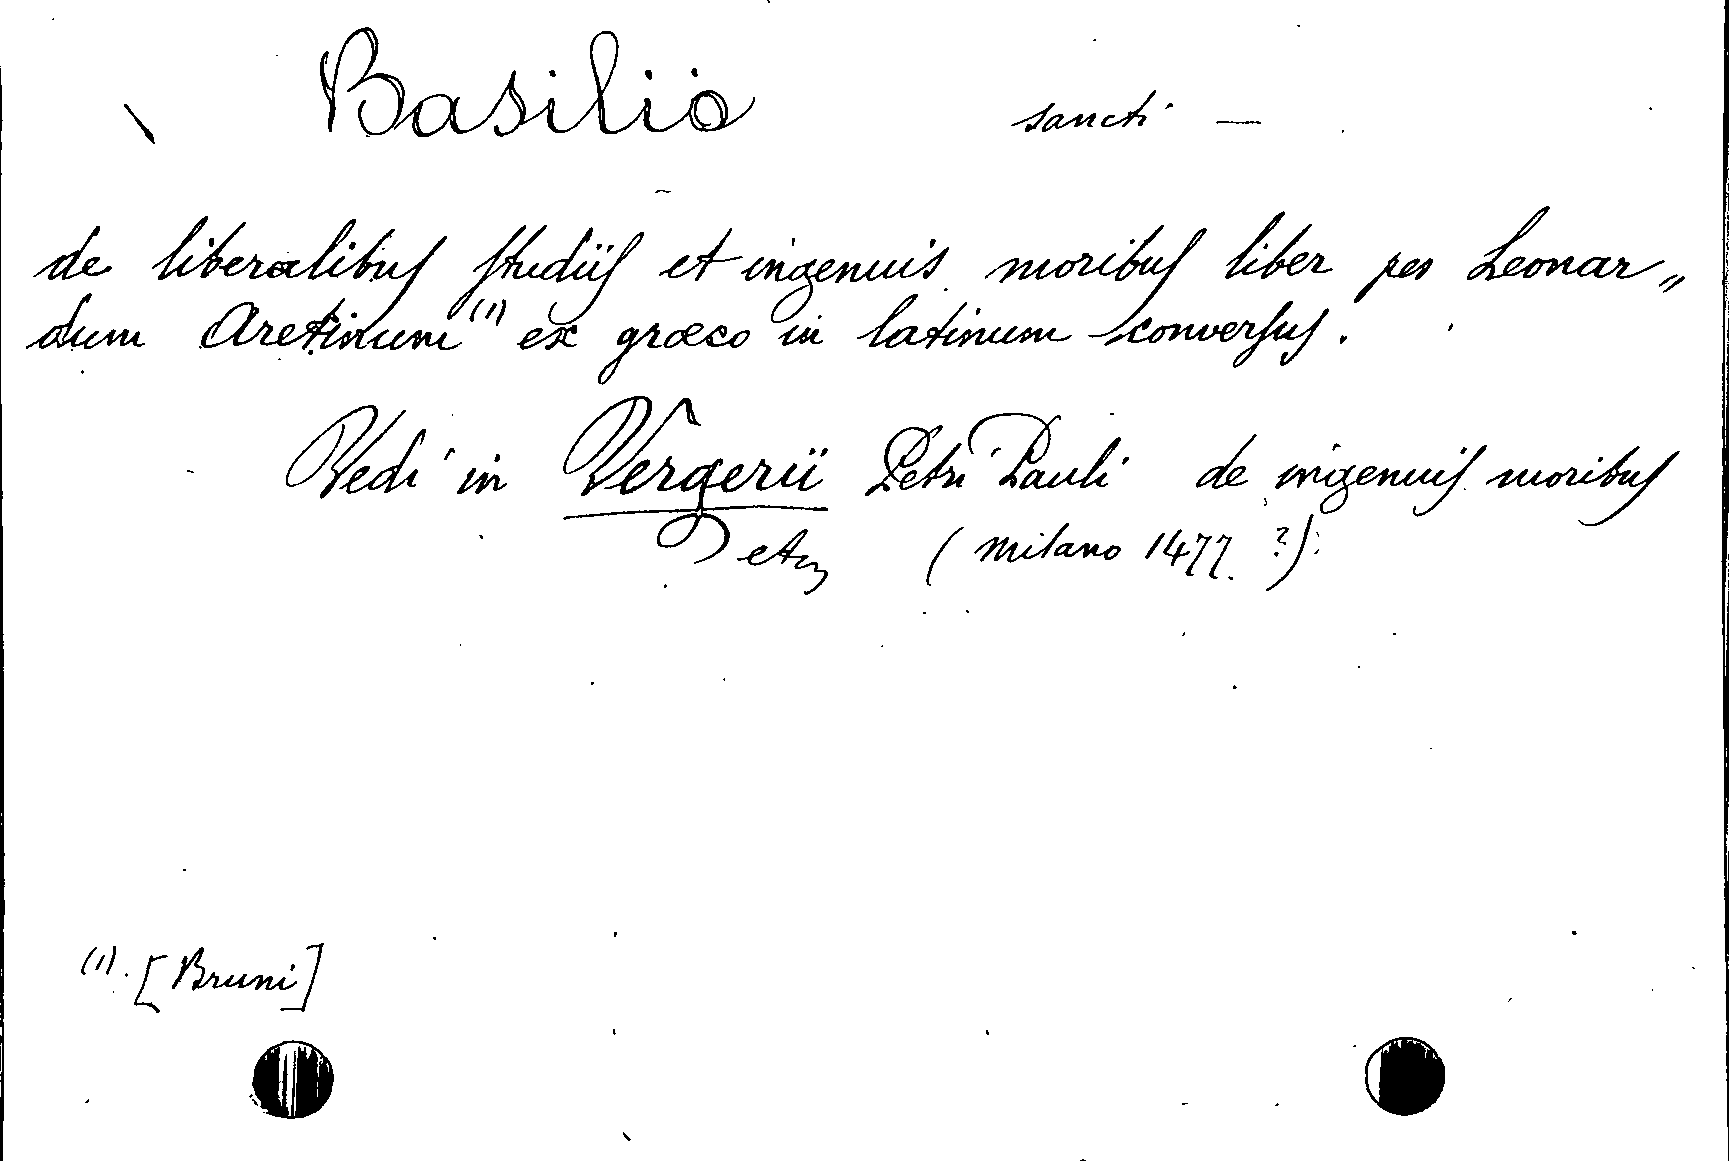 Basilio sancti —
de liberalibus studiis et ingenuis moribus liber per Leonar„
dum Aretinum (1) ex græco in latinum conversus.
Vedi in Vergerii Petri Pauli de ingenuis moribus
etc (Milano 1477?)
(1). [Bruni]